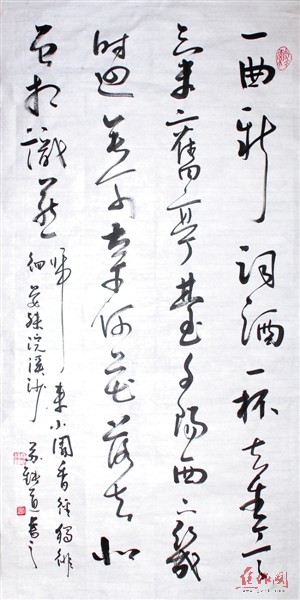 一曲新詞酒一杯去年天
氣舊亭臺夕陽西下幾
時迴無可奈何花落去似
曾相識燕歸來小園香徑獨徘
徊晏殊浣溪沙 道書之